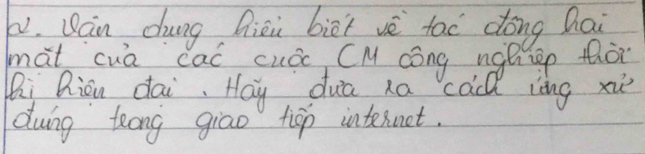 2. Vận dụng hiểu biết về tác động hai
mặt của các cuộc CM công nghiệp thời
kì hiện đại. Hãy đưa ra cách ứng xử
đúng trong giao tiếp internet.